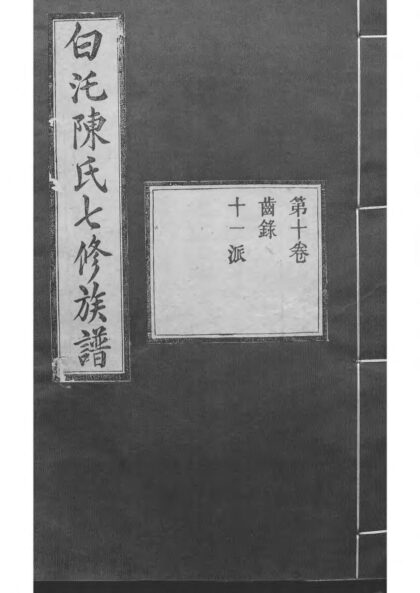 白沱陳氏七修族譜
第十卷
齒錄
十一派